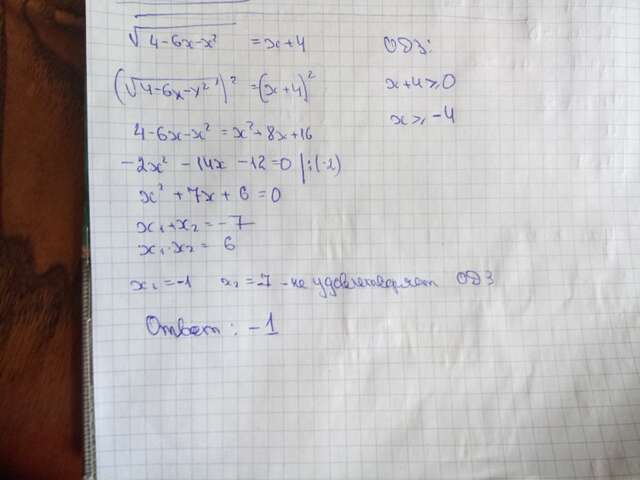 √4-6x-x² = x+4 ОДЗ:
(√4-6x-x²)² = (x+4)² x+4≥0
4-6x-x² = x²+8x+16 x≥-4
-2x² -14x -12=0 |:(-2)
x² +7x+6=0
x₁+x₂=-7
x₁·x₂= 6
x₁=-1 x₂=-7 -не удовлетворяет ОДЗ
Ответ: -1